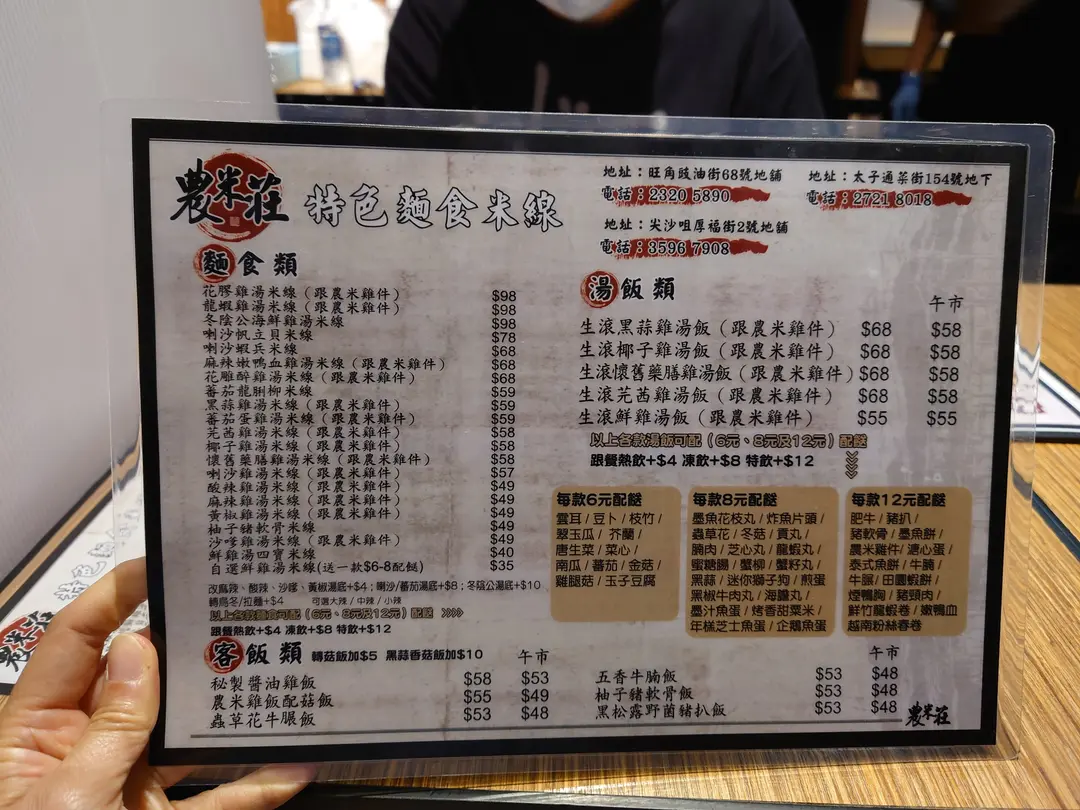 農米莊
特色麵食米線
地址：旺角豉油街68號地舖
電話：2320 5890
地址：太子通菜街154號地下
電話：2721 8018
地址：尖沙咀厚福街2號地舖
電話：3596 7908
麵食類
花膠雞湯米線（跟農米雞件） $98
龍蝦雞湯米線（跟農米雞件） $98
冬陰公海鮮雞湯米線 $98
喇沙帆立貝米線 $78
喇沙蝦兵米線 $68
麻辣嫩鴨血雞湯米線（跟農米雞件） $68
花雕醉雞湯米線（跟農米雞件） $68
蕃茄龍脷柳米線 $59
黑蒜雞湯米線（跟農米雞件） $59
蕃茄蛋雞湯米線（跟農米雞件） $59
芫茜雞湯米線（跟農米雞件） $58
椰子雞湯米線（跟農米雞件） $58
懷舊藥膳雞湯米線（跟農米雞件） $58
喇沙雞湯米線（跟農米雞件） $57
酸辣雞湯米線（跟農米雞件） $49
麻辣雞湯米線（跟農米雞件） $49
黃椒雞湯米線（跟農米雞件） $49
柚子豬軟骨米線 $49
沙嗲雞湯米線（跟農米雞件） $49
鮮雞湯四寶米線 $40
自選鮮雞湯米線(送一款$6-8配餸) $35
改麻辣、酸辣、沙嗲、黃椒湯底+$4；喇沙/蕃茄湯底+$8；冬陰公湯底+$10
轉烏冬/拉麵+$4 可選大辣 / 中辣 / 小辣
以上各款麵食可配（6元、8元及12元）配餸 >>>
跟餐熱飲+$4 凍飲+$8 特飲+$12
湯飯類
午市
生滾黑蒜雞湯飯（跟農米雞件） $68 $58
生滾椰子雞湯飯（跟農米雞件） $68 $58
生滾懷舊藥膳雞湯飯（跟農米雞件） $68 $58
生滾芫茜雞湯飯（跟農米雞件） $68 $58
生滾鮮雞湯飯（跟農米雞件） $55 $55
以上各款湯飯可配（6元、8元及12元）配餸
跟餐熱飲+$4 凍飲+$8 特飲+$12
每款6元配餸
雲耳 / 豆卜 / 枝竹 /
翠玉瓜 / 芥蘭 /
唐生菜 / 菜心 /
南瓜 / 蕃茄 / 金菇 /
雞腿菇 / 玉子豆腐
每款8元配餸
墨魚花枝丸 / 炸魚片頭 /
蟲草花 / 冬菇 / 貢丸 /
腩肉 / 芝心丸 / 龍蝦丸 /
蜜糖腸 / 蟹柳 / 蟹籽丸 /
黑蒜 / 迷你獅子狗 / 煎蛋
黑椒牛肉丸 / 海膽丸 /
墨汁魚蛋 / 烤香甜粟米 /
年糕芝士魚蛋 / 企鵝魚蛋
每款12元配餸
肥牛 / 豬扒 /
豬軟骨 / 墨魚餅 /
農米雞件 / 溏心蛋 /
泰式魚餅 / 牛腩 /
牛𦟌 / 田園蝦餅 /
煙鴨胸 / 豬頸肉 /
鮮竹龍蝦卷 / 嫩鴨血
越南粉絲春卷
客飯類 轉菇飯加$5 黑蒜香菇飯加$10 午市
秘製醬油雞飯 $58 $53
農米雞飯配菇飯 $55 $49
蟲草花牛𦟌飯 $53 $48
午市
五香牛腩飯 $53 $48
柚子豬軟骨飯 $53 $48
黑松露野菌豬扒飯 $53 $48
農米莊